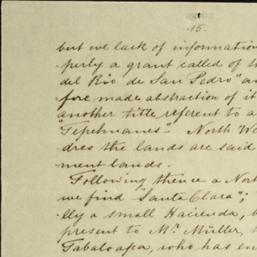 15.
but we lack of information
perly a grant called of th
del Rio de San Pedro" an
fore made abstraction of it
another title referent to a
"Tepehuanes - North We
dres the lands are said
ment lands.
Following thence a Nort
we find "Santa Clara";
lly a small Hacienda, b
present to Mr. Müller,
Tabaloapa, who has en